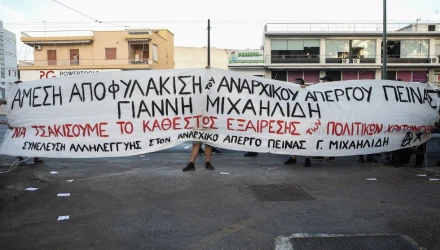 PG POWERTOOLS
ΑΜΕΣΗ ΑΠΟΦΥΛΑΚΙΣΗ ΑΝΑΡΧΙΚΟΥ ΑΠΕΡΓΟΥ ΠΕΙΝΑΣ
ΓΙΑΝΝΗ ΜΙΧΑΗΛΙΔΗ
ΝΑ ΤΣΑΚΙΣΟΥΜΕ ΤΟ ΚΑΘΕΣΤΩΣ ΕΞΑΙΡΕΣΗΣ των ΠΟΛΙΤΙΚΩΝ ΚΡΑΤΟΥΜΕΝΩΝ
ΣΥΝΕΛΕΥΣΗ ΑΛΛΗΛΕΓΓΥΗΣ ΣΤΟΝ ΑΝΑΡΧΙΚΟ ΑΠΕΡΓΟ ΠΕΙΝΑΣ Γ. ΜΙΧΑΗΛΙΔΗ